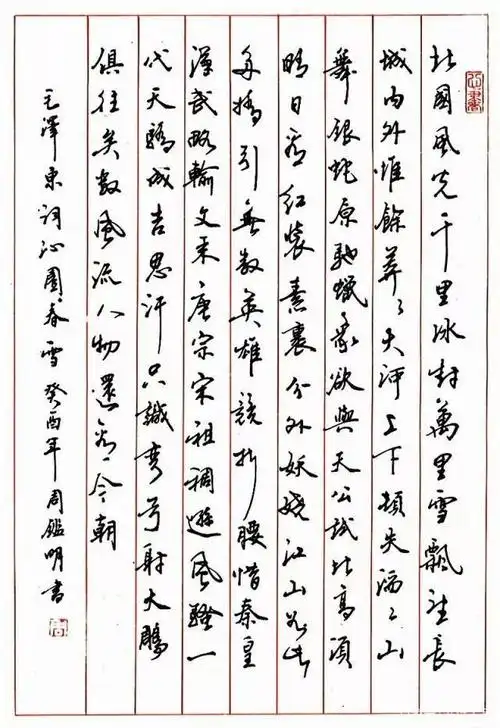 北國風光千里冰封萬里雪飄望長
城内外惟餘莽々大河上下頓失滔々山
舞銀蛇原馳蠟象欲與天公試比高須
晴日看紅裝素裹分外妖嬈江山如此
多嬌引無數英雄競折腰惜秦皇
漢武略輸文采唐宗宋祖稍遜風騷一
代天驕成吉思汗只識彎弓射大鵰
俱往矣數風流人物還看今朝
毛澤東詞沁園春雪癸酉年周鑑明書